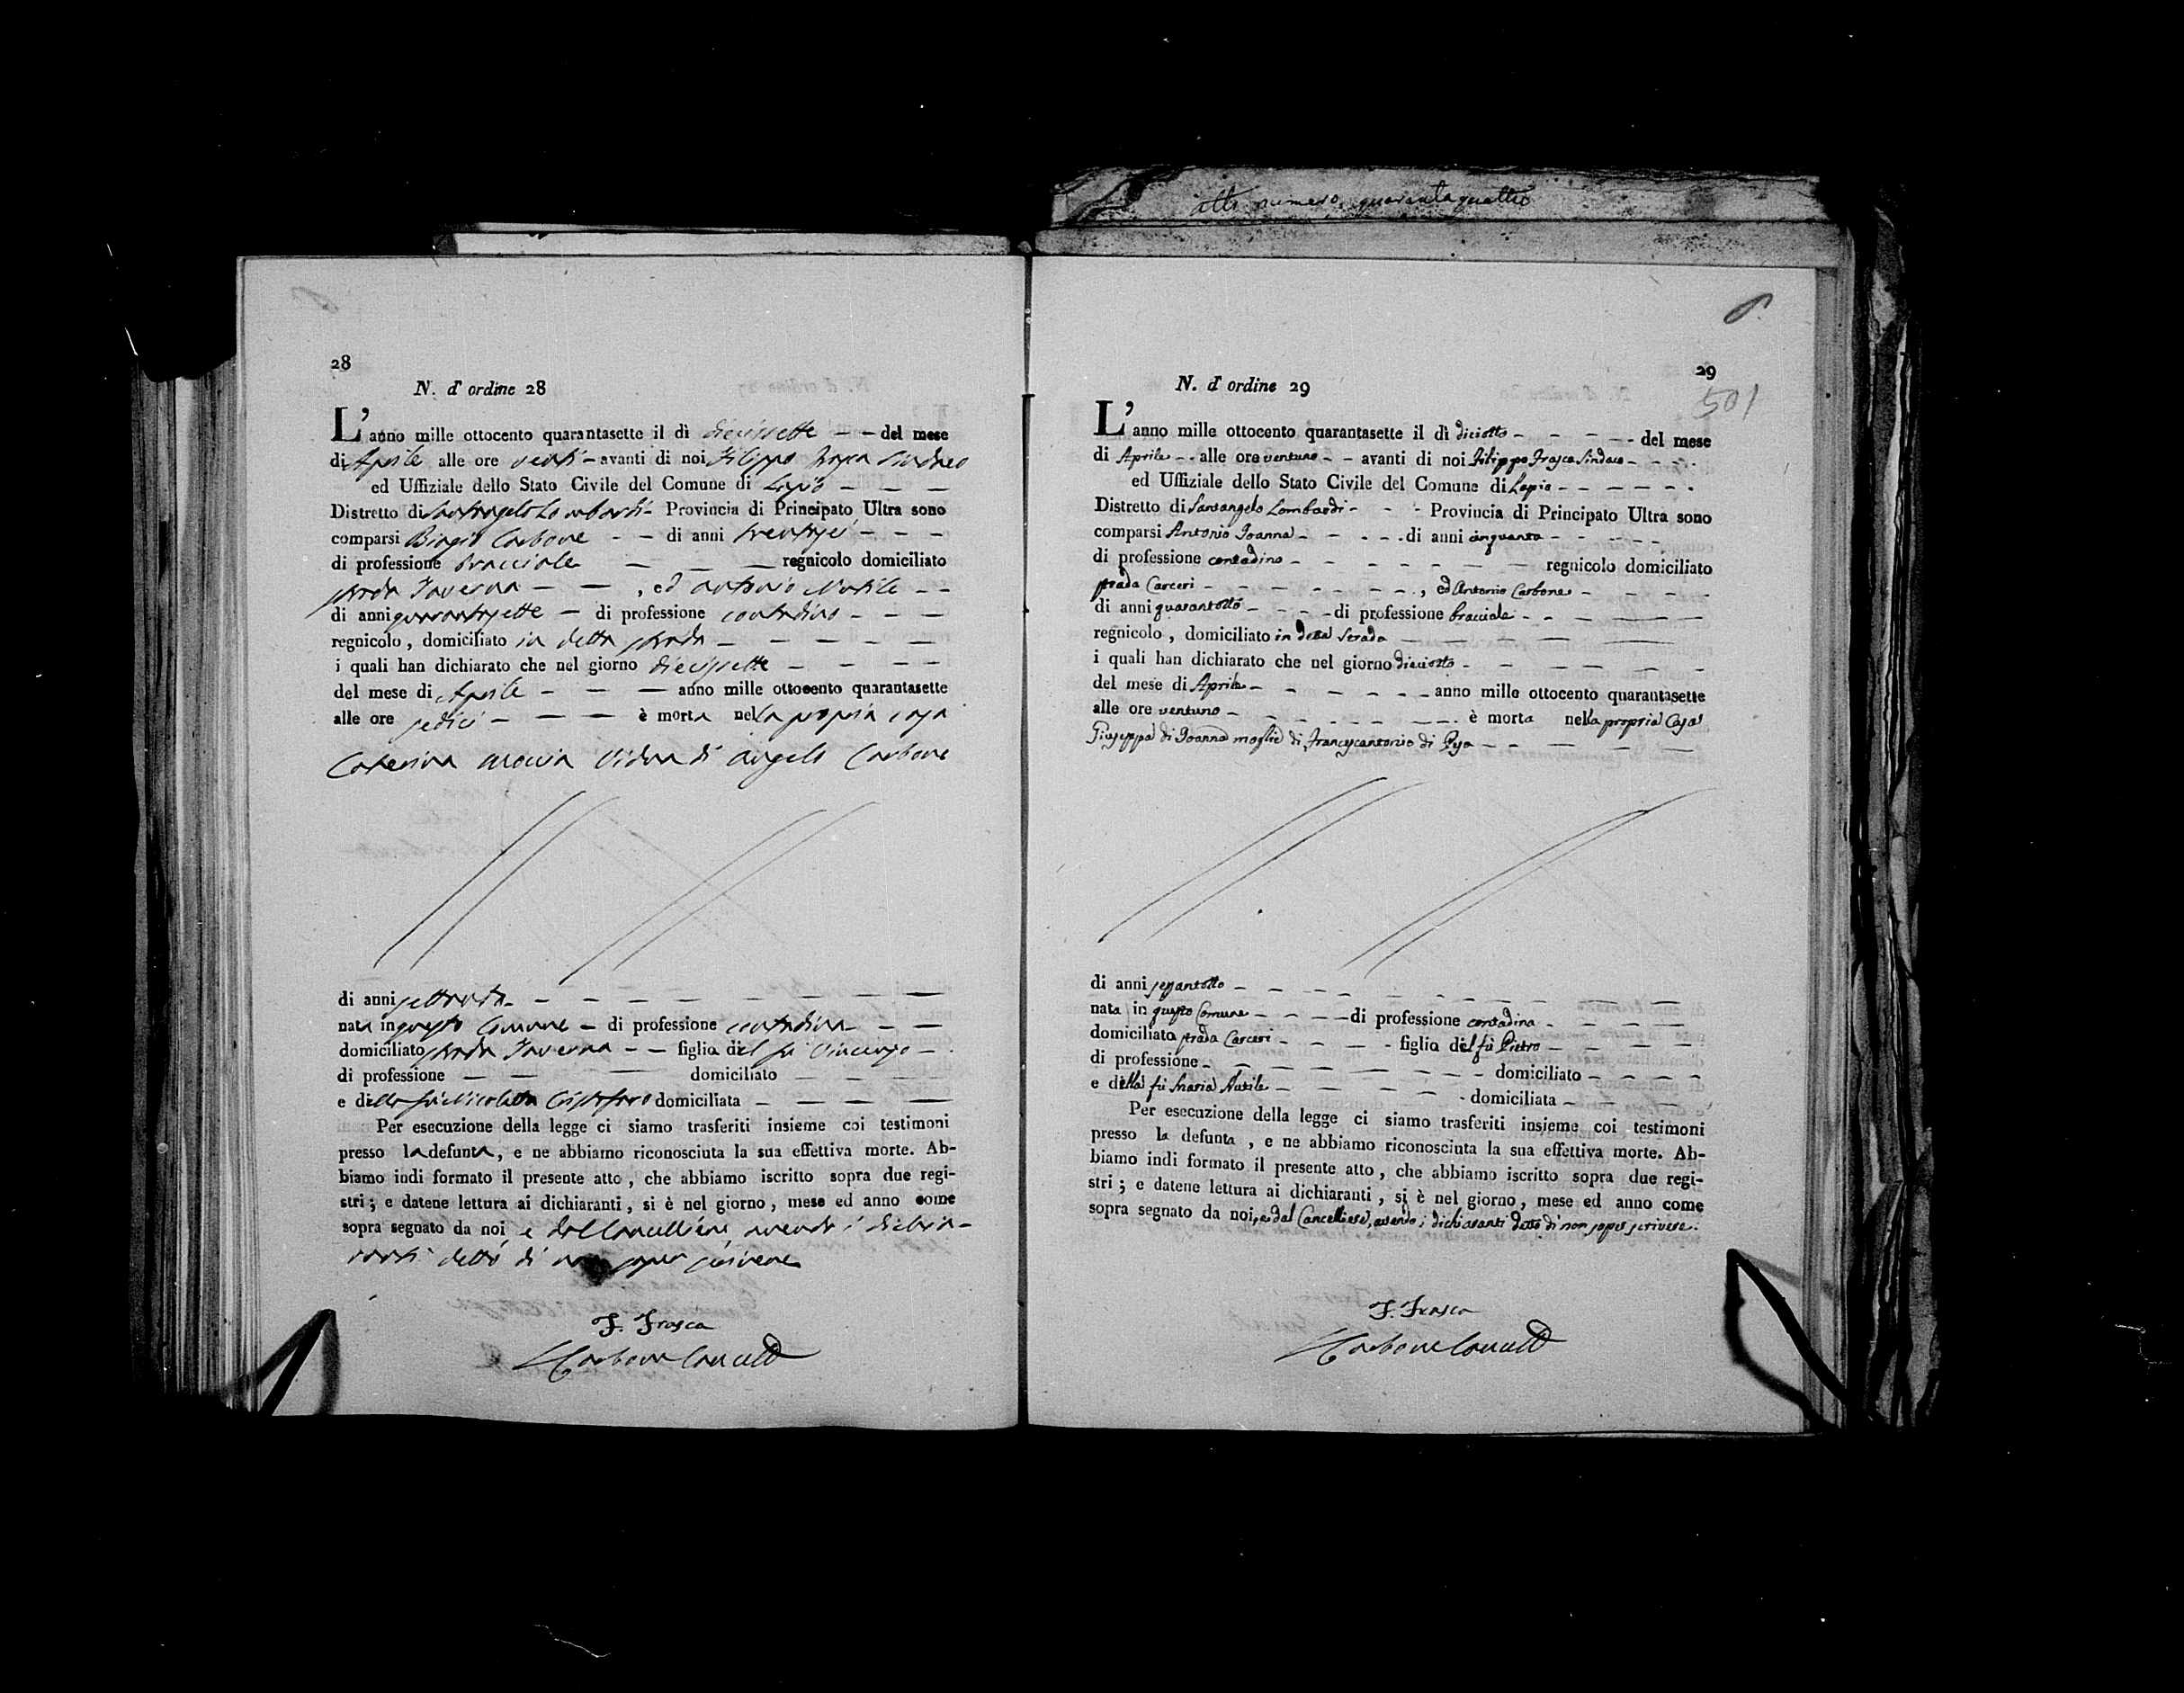 atti numero quarantaquattro
28
N. d'ordine 28
L'anno mille ottocento quarantasette il dì diecissette — — del mese
di Aprile alle ore venti — avanti di noi Filippo Frasca Sindaco
ed Uffiziale dello Stato Civile del Comune di Lapio — — —
Distretto di Santangelo Lombardi — Provincia di Principato Ultra sono
comparsi Biagio Carbone — — di anni trentasei — — —
di professione bracciale — — — regnicolo domiciliato
strada Taverna — — , ed Antonio Nutile — —
di anni quarantasette — di professione contadino — — —
regnicolo , domiciliato in detta strada — — — — —
i quali han dichiarato che nel giorno diecissette — — — —
del mese di Aprile — — — anno mille ottocento quarantasette
alle ore sedici — — — è morta nella propria casa
Caterina vidua di Angelo Carbone
di anni settanta — — — — — — — — —
nata in questo Comune — di professione contadina — — —
domiciliato strada Taverna — — figlia del fù Vincenzo —
di professione — — — domiciliato — — —
e della fù Nicoletta Cristofaro domiciliata — — — —
Per esecuzione della legge ci siamo trasferiti insieme coi testimoni
presso la defunta, e ne abbiamo riconosciuta la sua effettiva morte. Ab-
biamo indi formato il presente atto , che abbiamo iscritto sopra due regi-
stri ; e datene lettura ai dichiaranti , si è nel giorno , mese ed anno come
sopra segnato da noi, e dal Cancelliere, avendo i dichia-
ranti detto di non saper scrivere
F. Frasca
Carbone Cancell
29
501
N. d'ordine 29
L'anno mille ottocento quarantasette il dì diciotto — — — — del mese
di Aprile — alle ore ventuno — — avanti di noi Filippo Frasca Sindaco — — —
ed Uffiziale dello Stato Civile del Comune di Lapio — — — — — —
Distretto di Santangelo Lombardi — — — Provincia di Principato Ultra sono
comparsi Antonio Joanna — — — — di anni cinquanta — — — — —
di professione contadino — — — — — — — regnicolo domiciliato
strada Carceri — — — — — — — , ed Antonio Carbone — — — — —
di anni quarantotto — — — — di professione bracciale — — — — —
regnicolo , domiciliato in detta Strada — — — — —
i quali han dichiarato che nel giorno dieciotto — — — — — — —
del mese di Aprile — — — — — — — anno mille ottocento quarantasette
alle ore ventuno — — — — — — — è morta nella propria Casa
Giuseppa di Joanna moglie di Francescantonio di — — — — —
di anni sessantotto — — — — — — — — — — —
nata in questo Comune — — — — di professione contadina — — — —
domiciliato strada Carceri — — — — figlia del fù Pietro — — — — —
di professione — — — — — — — — domiciliato — — — —
e della fù Maria Nutile — — — — — — domiciliata — — —
Per esecuzione della legge ci siamo trasferiti insieme coi testimoni
presso la defunta , e ne abbiamo riconosciuta la sua effettiva morte. Ab-
biamo indi formato il presente atto , che abbiamo iscritto sopra due regi-
stri ; e datene lettura ai dichiaranti , si è nel giorno , mese ed anno come
sopra segnato da noi, e dal Cancelliere, avendo i dichiaranti detto di non saper scrivere.
F. Frasca
Carbone Cancell